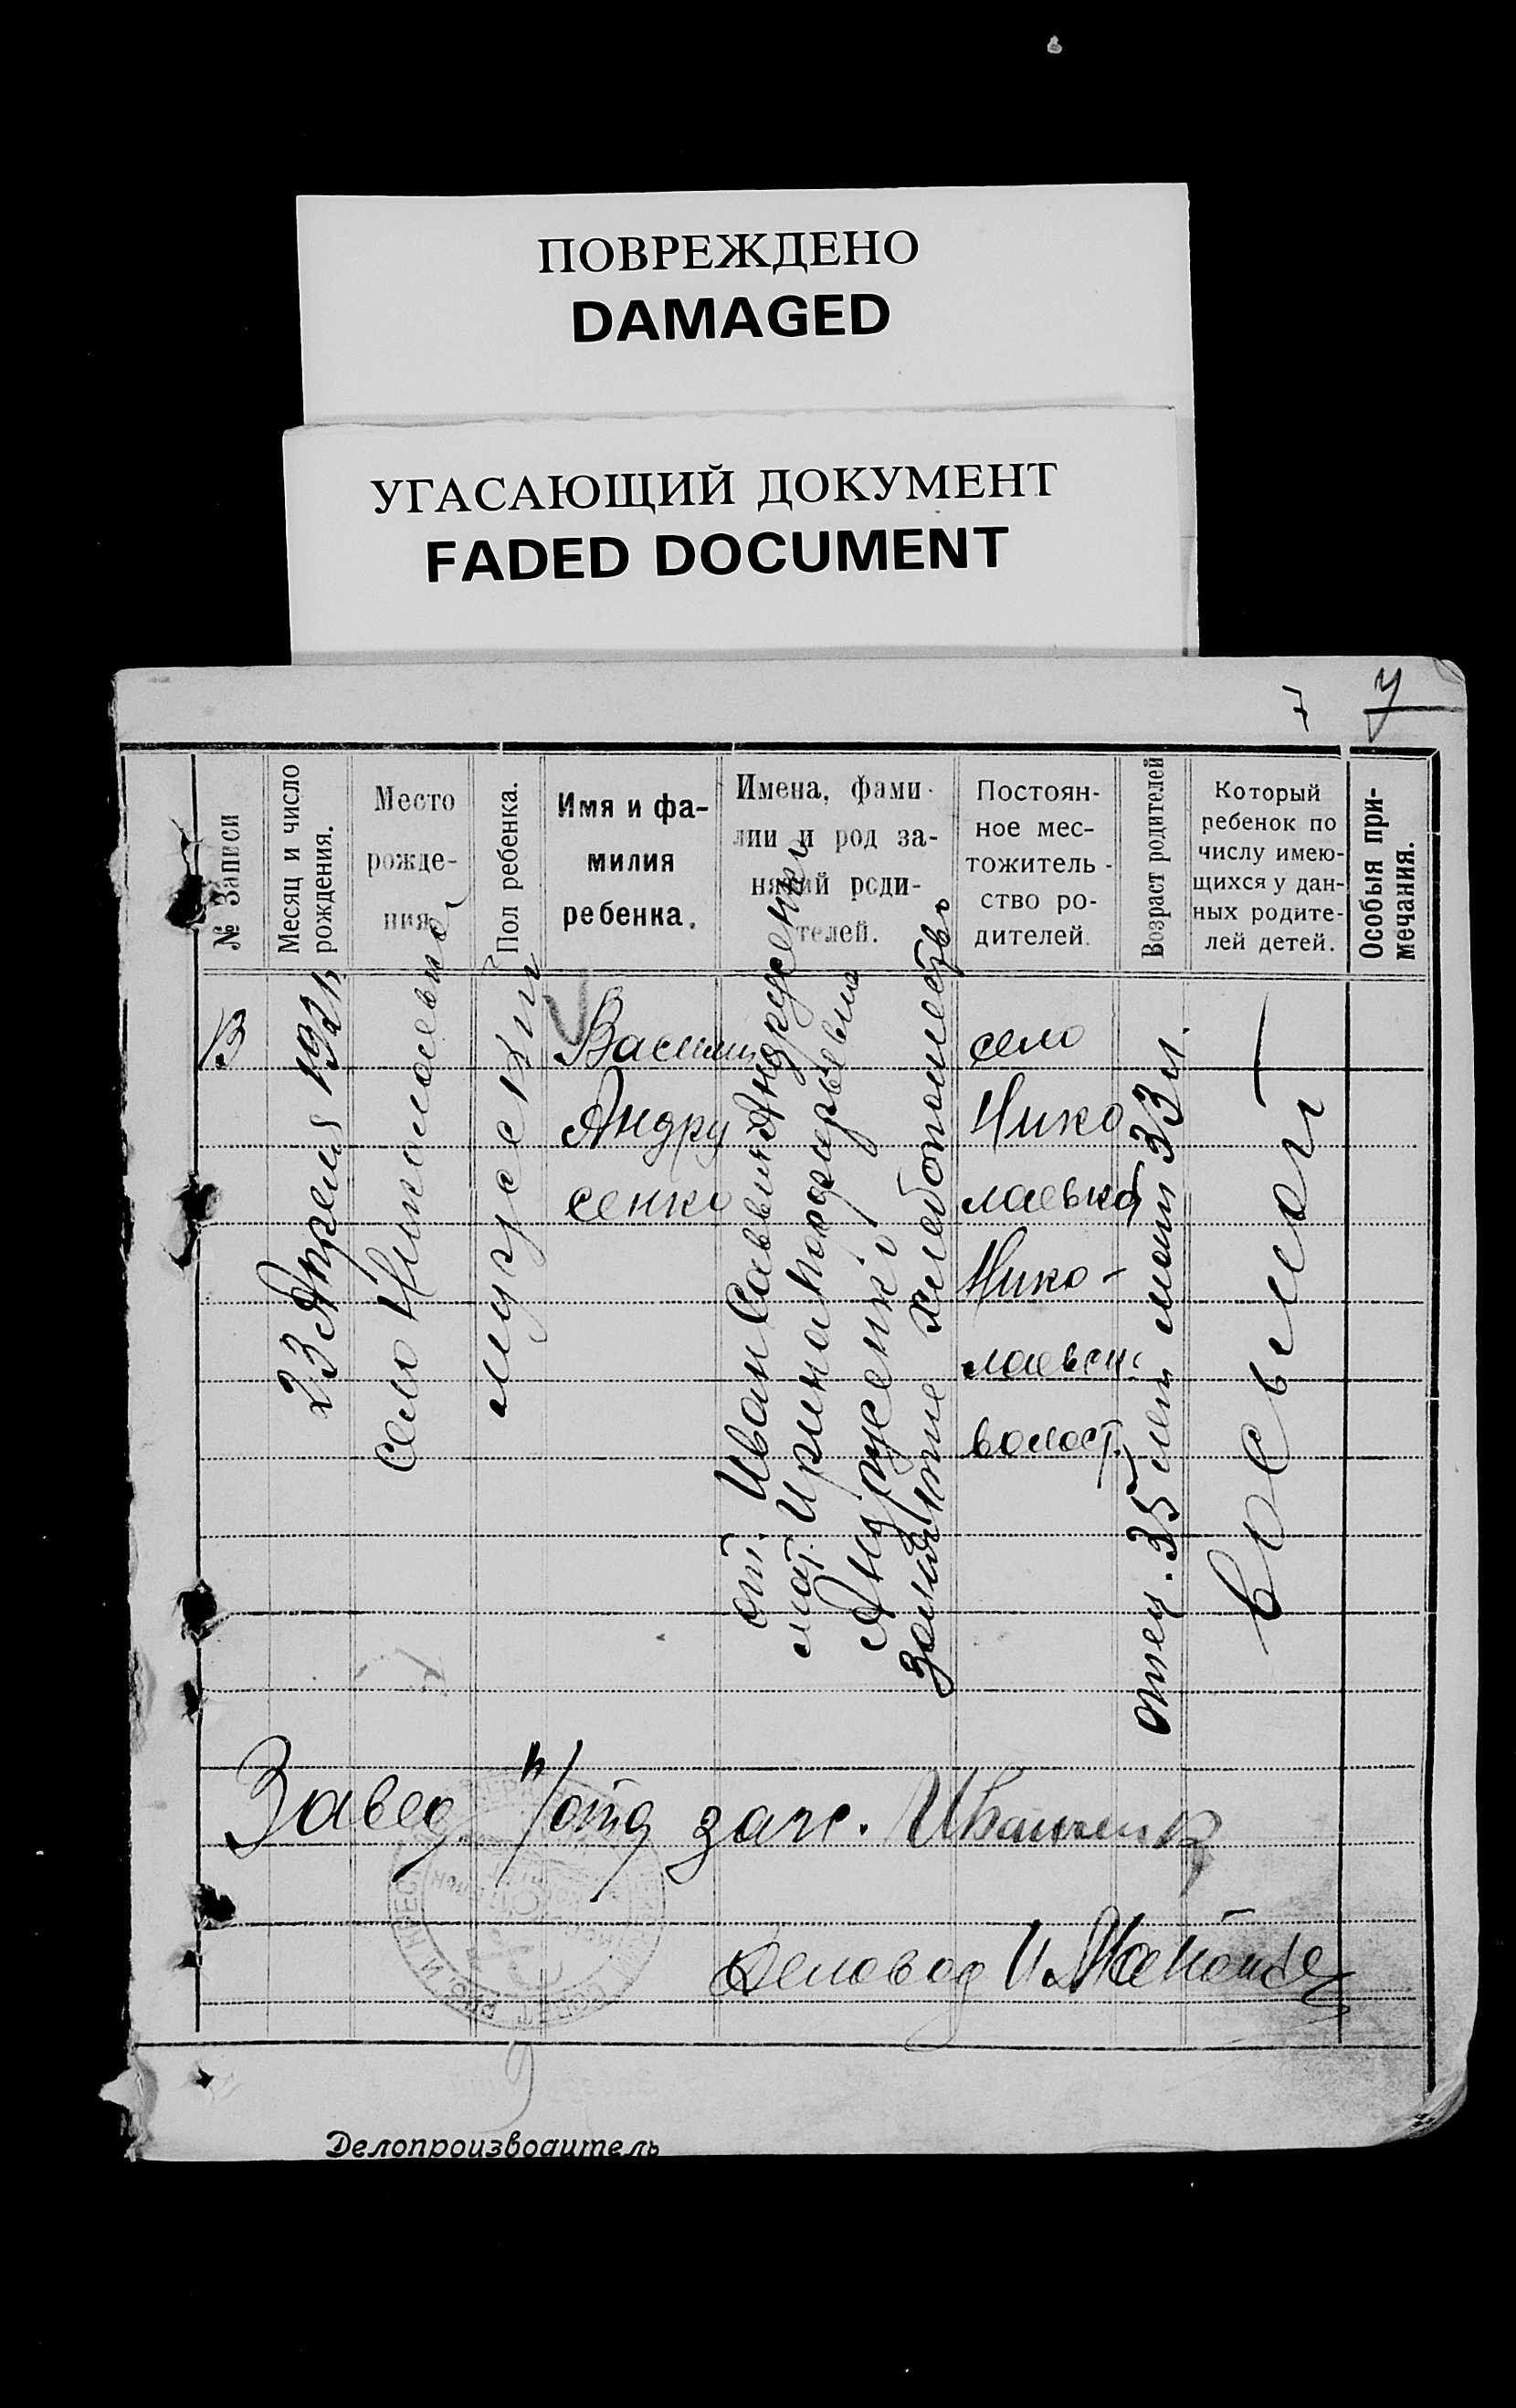 ПОВРЕЖДЕНО
DAMAGED
УГАСАЮЩИЙ ДОКУМЕНТ
FADED DOCUMENT
7
№ Записи
Месяц и число
рождения.
Место
рожде-
ния
Пол ребенка.
Имя и фа-
милия
ребенка.
Имена, фами-
лии и род за-
нятий роди-
телей.
Постоян-
ное мес-
тожитель-
ство ро-
дителей.
Возраст родителей
Который
ребенок по
числу имею-
щихся у дан-
ных родите-
лей детей.
Особыя при-
мечания.
23 Апреля 1921
село Николаевка
мужеский
Василий
Андру
сенко
от. Иван Саввич Андрусенко
мат. Ирина
Андрусенко
занятие хлебопашество
село
Нико
лаевка
Нико-
лаевск.
волост.
отец. 35 лет мат 33 л.
восьмой
Завед. п/отд загс. Иваненко
Деловод И.
Делопроизводитель